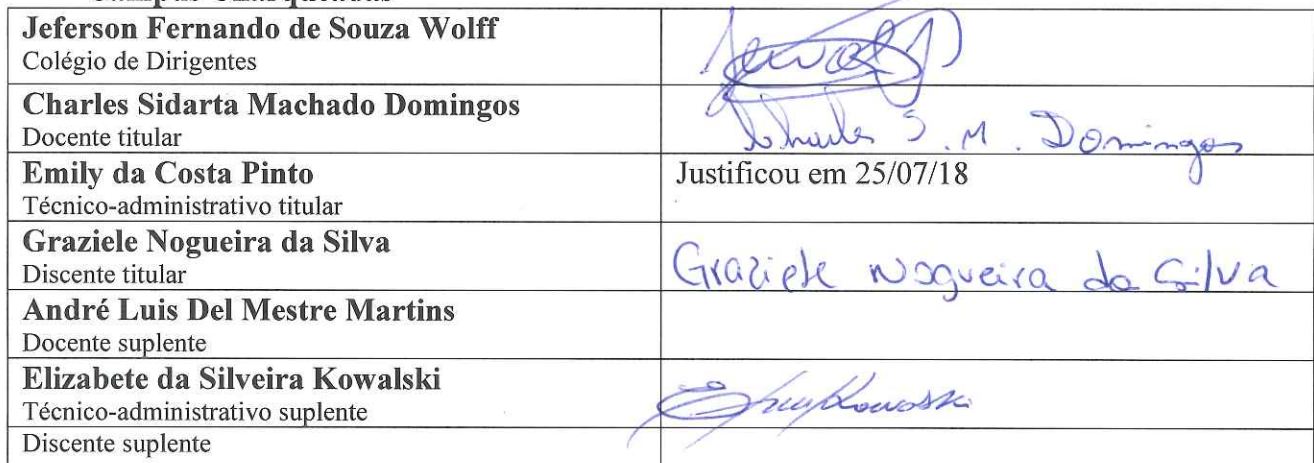 Campus Charqueadas
Jeferson Fernando de Souza Wolff
Colégio de Dirigentes
Charles Sidarta Machado Domingos
Docente titular
Charles S. M. Domingos
Emily da Costa Pinto
Justificou em 25/07/18
Técnico-administrativo titular
Graziele Nogueira da Silva
Discente titular
Graziele Nogueira da Silva
André Luis Del Mestre Martins
Docente suplente
Elizabete da Silveira Kowalski
Técnico-administrativo suplente
Discente suplente